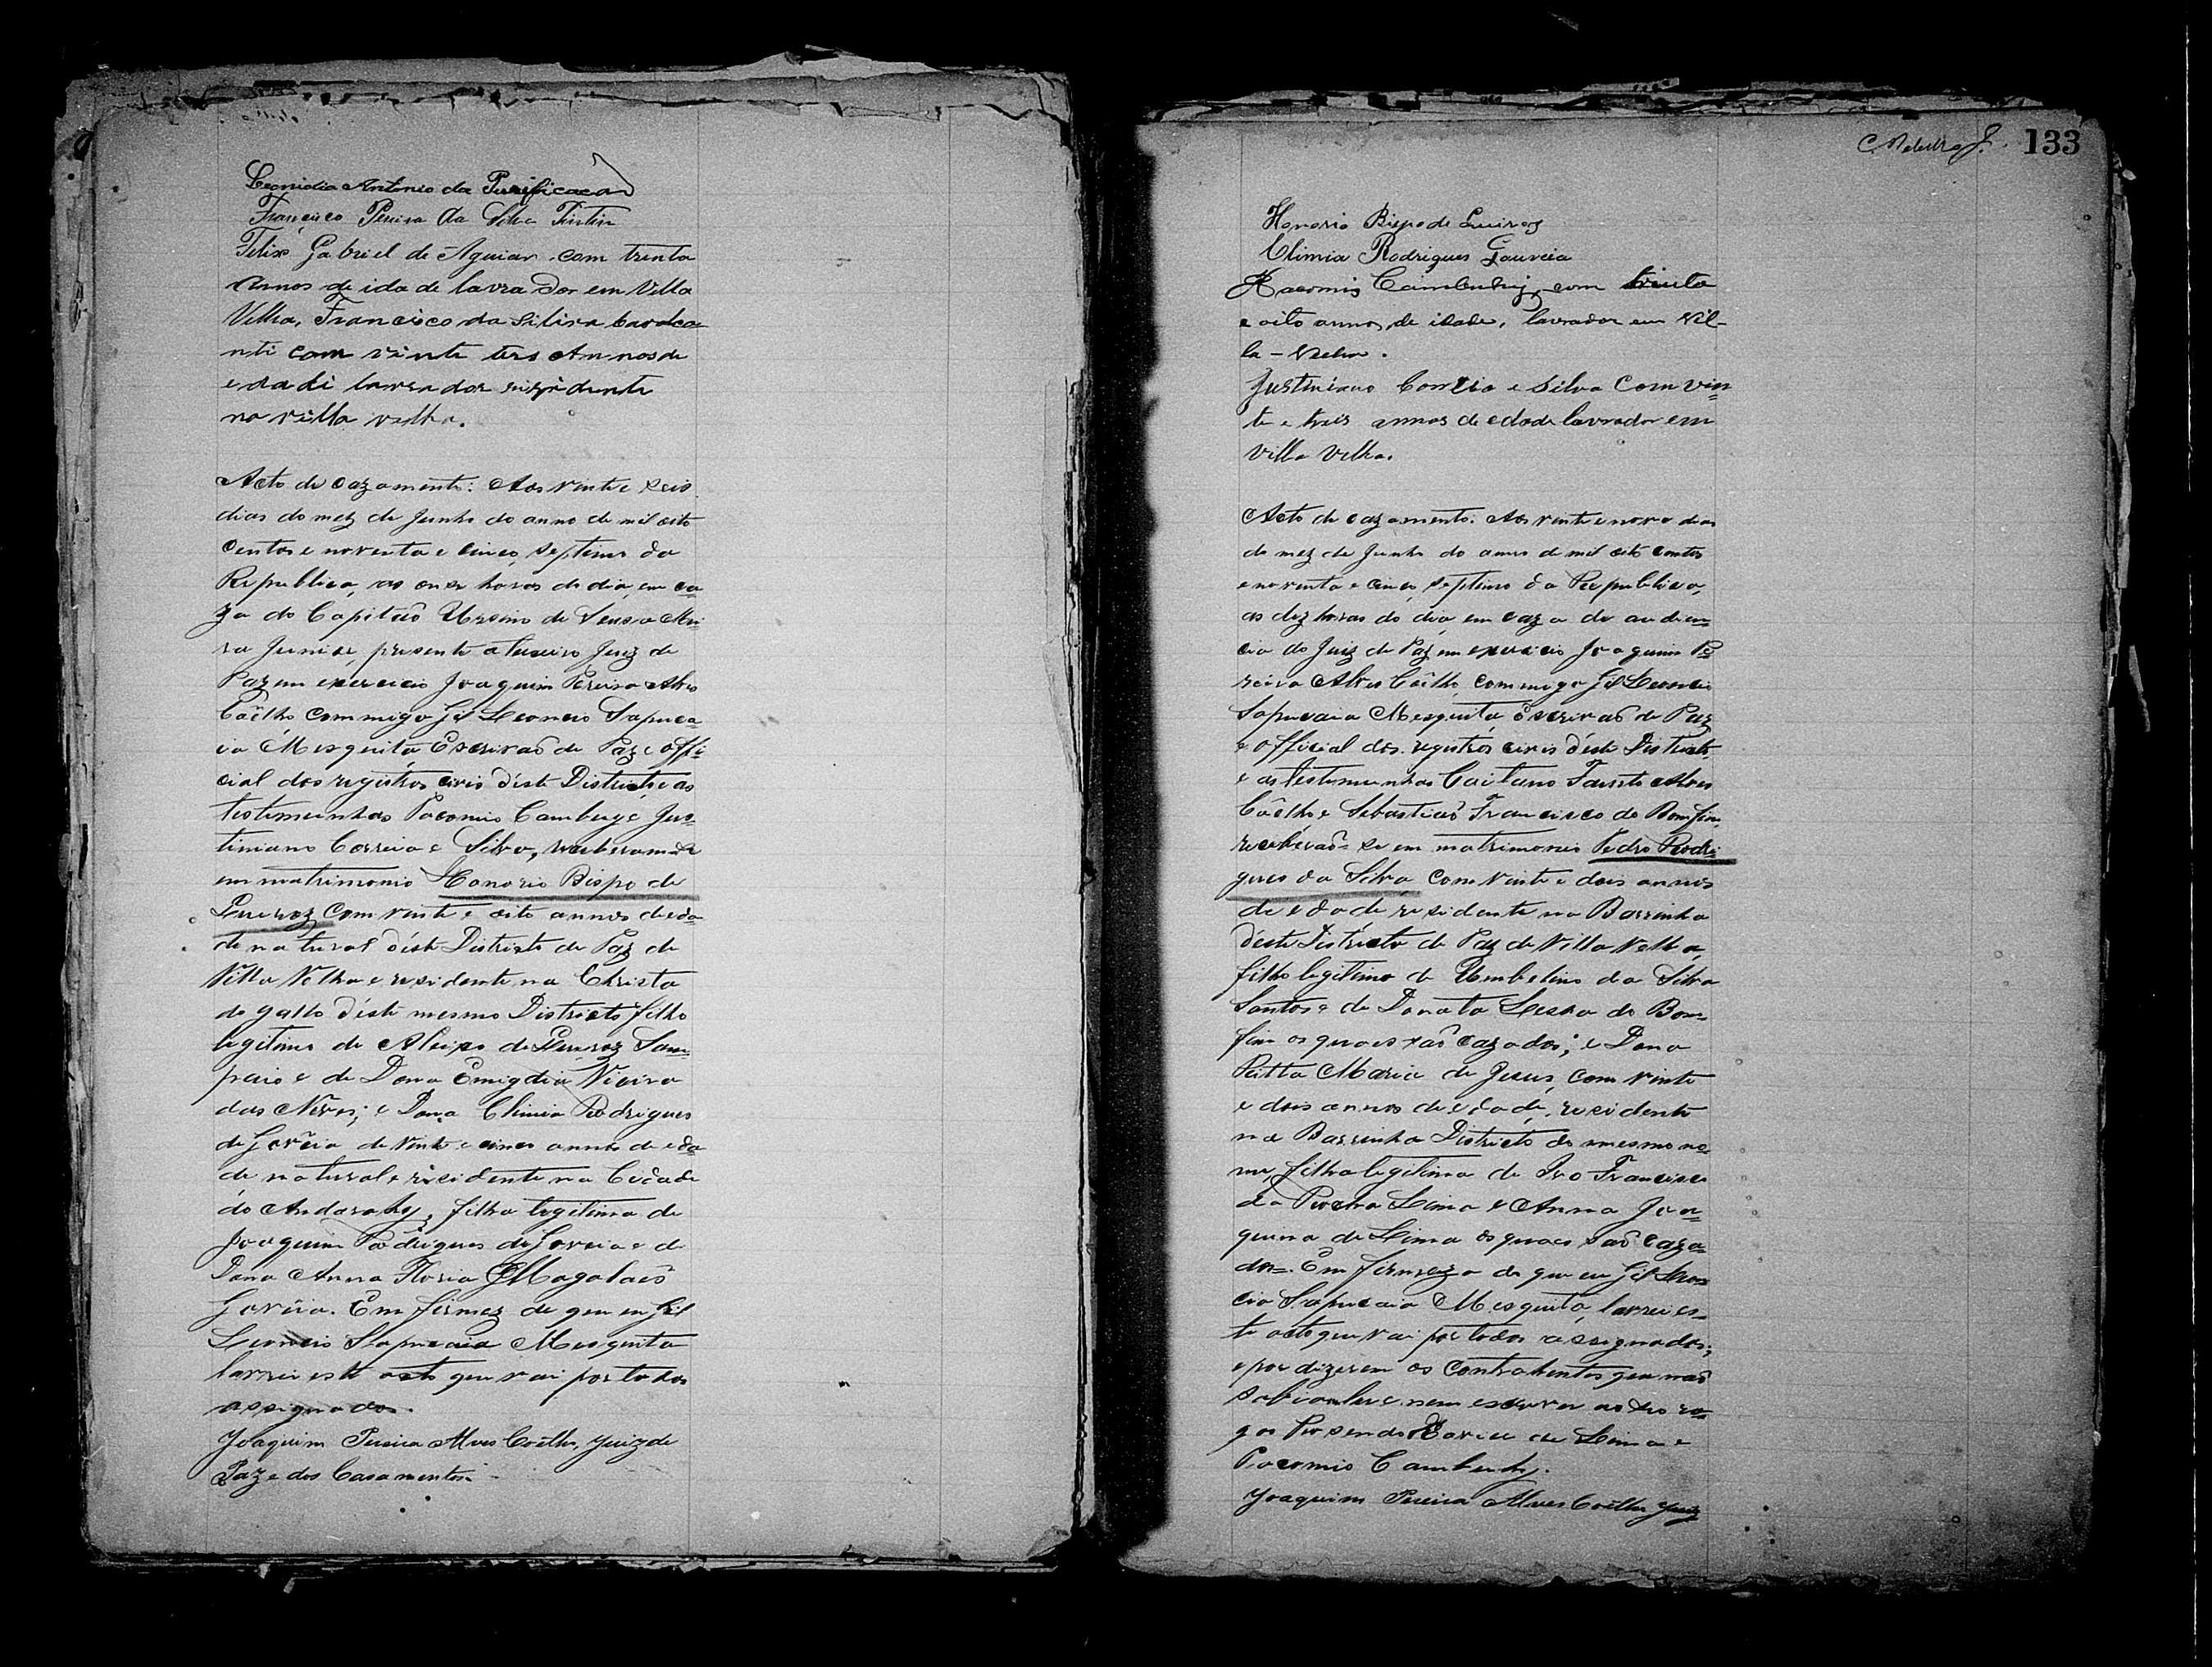 Leonidia Antonio da Purificacaõ
Francisco Pereira da Silva Tintin
Felix Gabriel de Aguiar com trenta
annos de idade lavrador em Villa
Velha, Francisco da Silva Cavalca
nti com vinte tres Annos de
edadi lavrador rezidente
na villa velha.
Acto de cazamento: Aos vente e seis
dias do mez de Junho do anno de mil oito
centos e noventa e cinco, septimo da
Republica, as onze horas do dia, em ca-
za do Capitaõ Ursino de Souza Mei
ra Junior, presente o terceiro Juiz de
Paz em exercicio Joaquim Pereira Alves
Coêlho commigo Gil Leoncio Sapuca
ia Mesquita Escrivaõ de Paz e offi-
cial dos registros civis d'este Districto, e as
testemunhas Pacomio Camberge Jus-
tiniano Correia e Silva, receberam-se
em matrimonio Honorio Bispo de
Queiroz com vinte e oito annos de eda-
de natural d'este Districto de Paz de
Villa Velha e residente na Christa
do gallo d'este mesmo Districto filho
legitimo de Aleixo de Queiroz Sam-
paio e de Dona Emigdia Vieira
das Neves; e Dona Climia Rodrigues
de Govêia de vinte e cinco annos de eda-
de natural e residente na Cidade
do Andarahy, filha legitima de
Joaquim Rodrigues de Goveia e de
Dona Anna Floria Magalaês
Govêia. Em firmez de que eu Gil
Leoncio Sapucaia Mesquita
lavrei este acto que vai por todos
assignados.
Joaquim Pereira Alves Coêlho, Juiz de
Paz e dos Casamentos.
133
Honorio Bispo de Queiroz
Climia Rodrigues Gouveia
Pacomio Camberhy, com trinta
e oito annos, de idade, lavrador em Vil-
la-Velha.
Justiniano Correia e Silva Com vin-
te e treis annos de edade lavrador em
Villa Velha.
Acto de cazamento. Aos vinte e nove dias
do mez de Junho do anno de mil oito centos
e noventa e cinco, septimo da Republica,
as dez horas do dia, em caza de audien-
cia do Juiz de Paz em exercicio Joaquim Pe-
reira Alves Coêlho, commigo Gil Leoncio
Sapucaia Mesquita Escrivaõ de Paz
e official dos registros civis d'este Districto,
e as testemunhas Caitano Fausto Alves
Coêlho e Sebastiaõ Francisco do Bomfim,
receberaõ-se em matrimonio Pedro Rodri-
gues da Silva com vinte e dois annos
de edade residente na Barrinha
d'este Districto de Paz de Villa Velha,
filho legitimo de Umbelino da Silva
Santos e de Donata Lessa do Bom-
fim os quaes saõ cazados; e Dona
Ritta Maria de Jesus, com vinte
e dois annos de edade, residente
na Barrinha Districto do mesmo no-
me, filha legitima de Ivo Francisco
da Rocha Lima e Anna Joa-
quina de Lima os quaes saõ caza-
dos. Em firmeza de que eu Gil Leon-
cio Sapucaia Mesquita, lavrei es-
te acto que vai por todos assignados;
e por dizerem os contrahentes que naõ
sabiaõ ler e nem escrever as seo ro-
gos Rosendo Xavier de Lima e
Pacomio Camberhy.
Joaquim Pereira Alves Coêlho Juiz